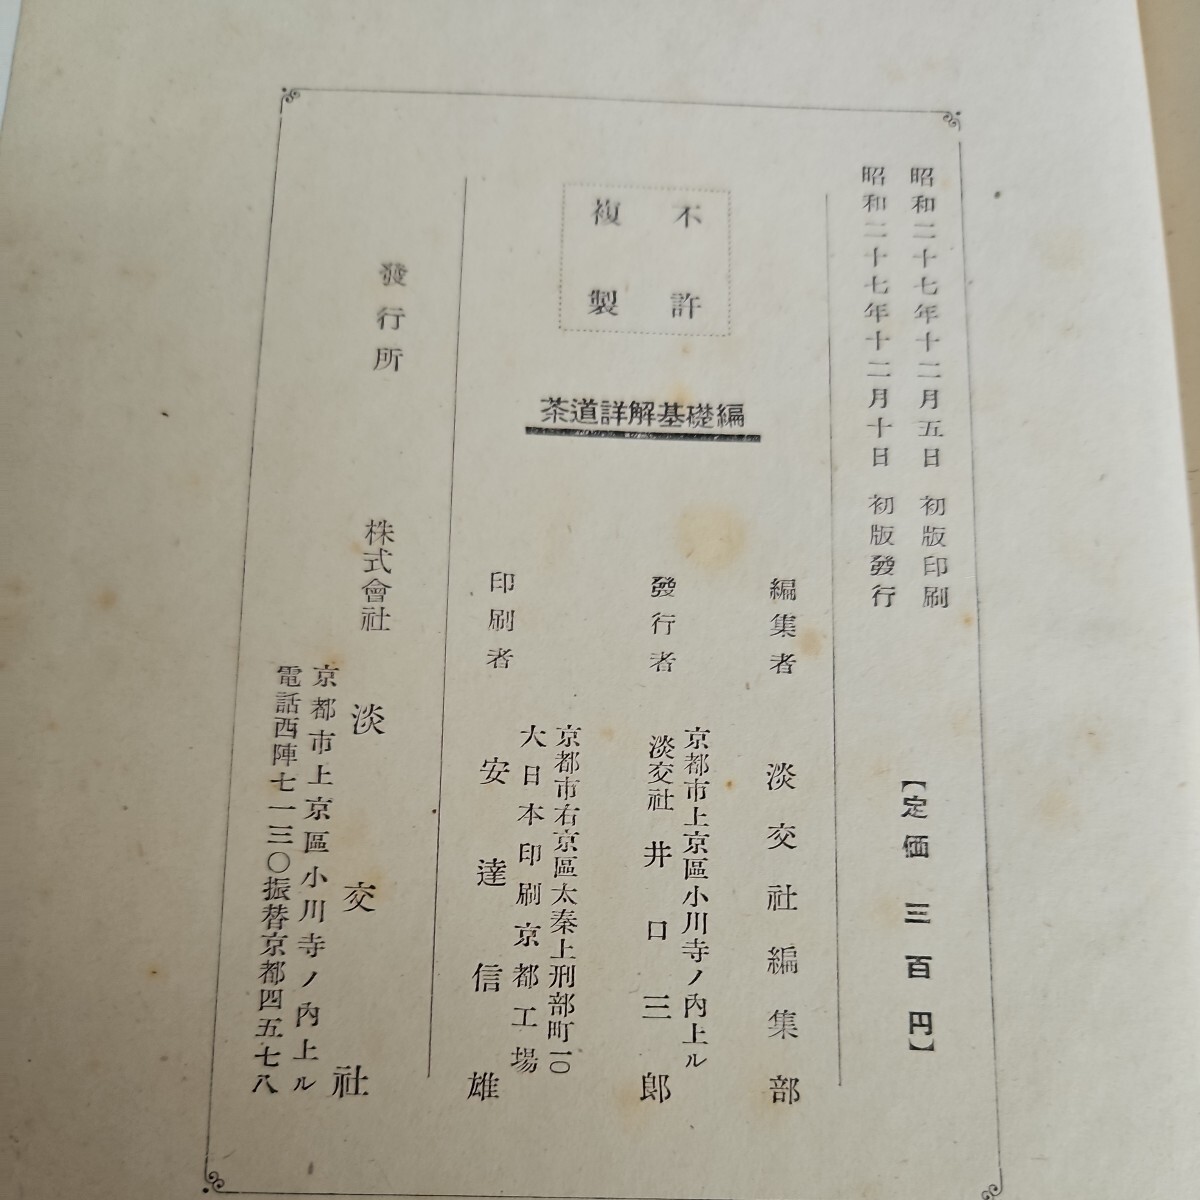 昭和二十七年十二月五日 初版印刷
昭和二十七年十二月十日 初版發行
【定価 三百円】
不許
複製
茶道詳解基礎編
編集者 淡交社編集部
京都市上京區小川寺ノ內上ル
發行者 淡交社 井口三郎
京都市右京區太秦上刑部町一〇
大日本印刷京都工場
印刷者 安達信雄
發行所 株式會社 淡交社
京都市上京區小川寺ノ內上ル
電話西陣七一三〇振替京都四五七八